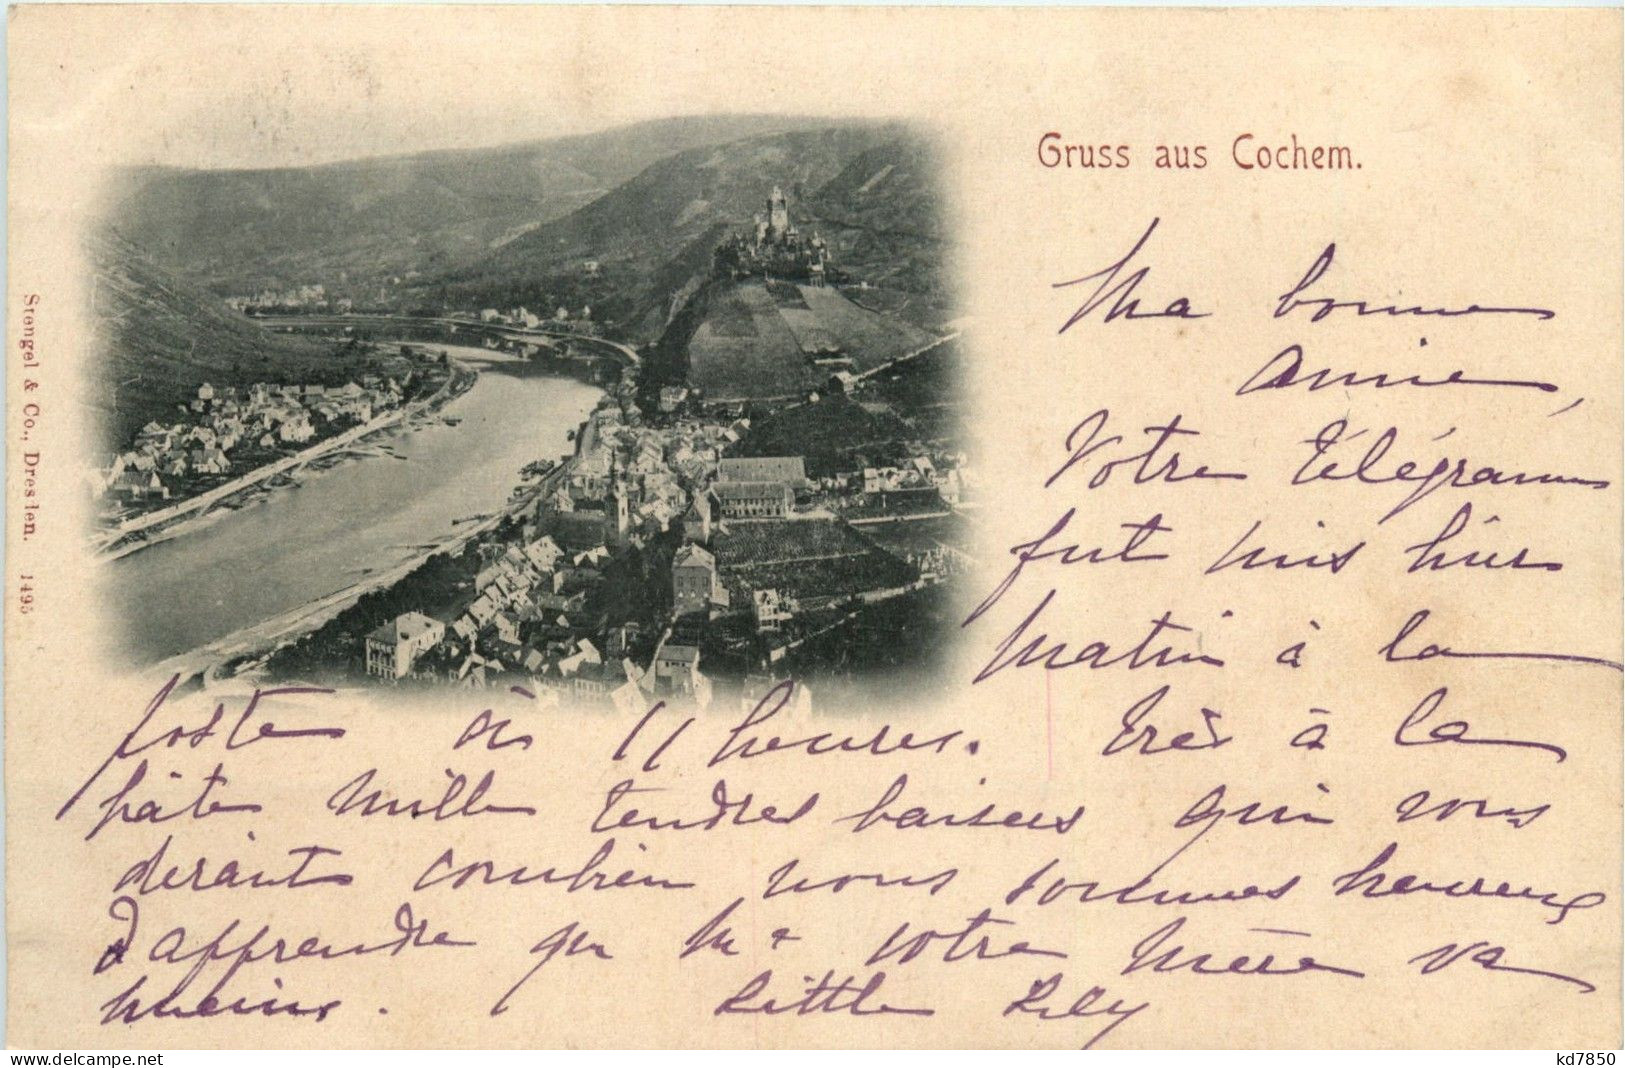 Gruss aus Cochem.
Stengel & Co., Dresden. 1495
Ma bonne
Annie,
Votre télégramme
fut mis hier
matin à la
poste à 11 heures. Très à la
hâte mille tendres baisers qui vous
diront combien nous sommes heureux
d'apprendre que Me votre mère va
mieux. Little Lily
delcampe.net
kd7850